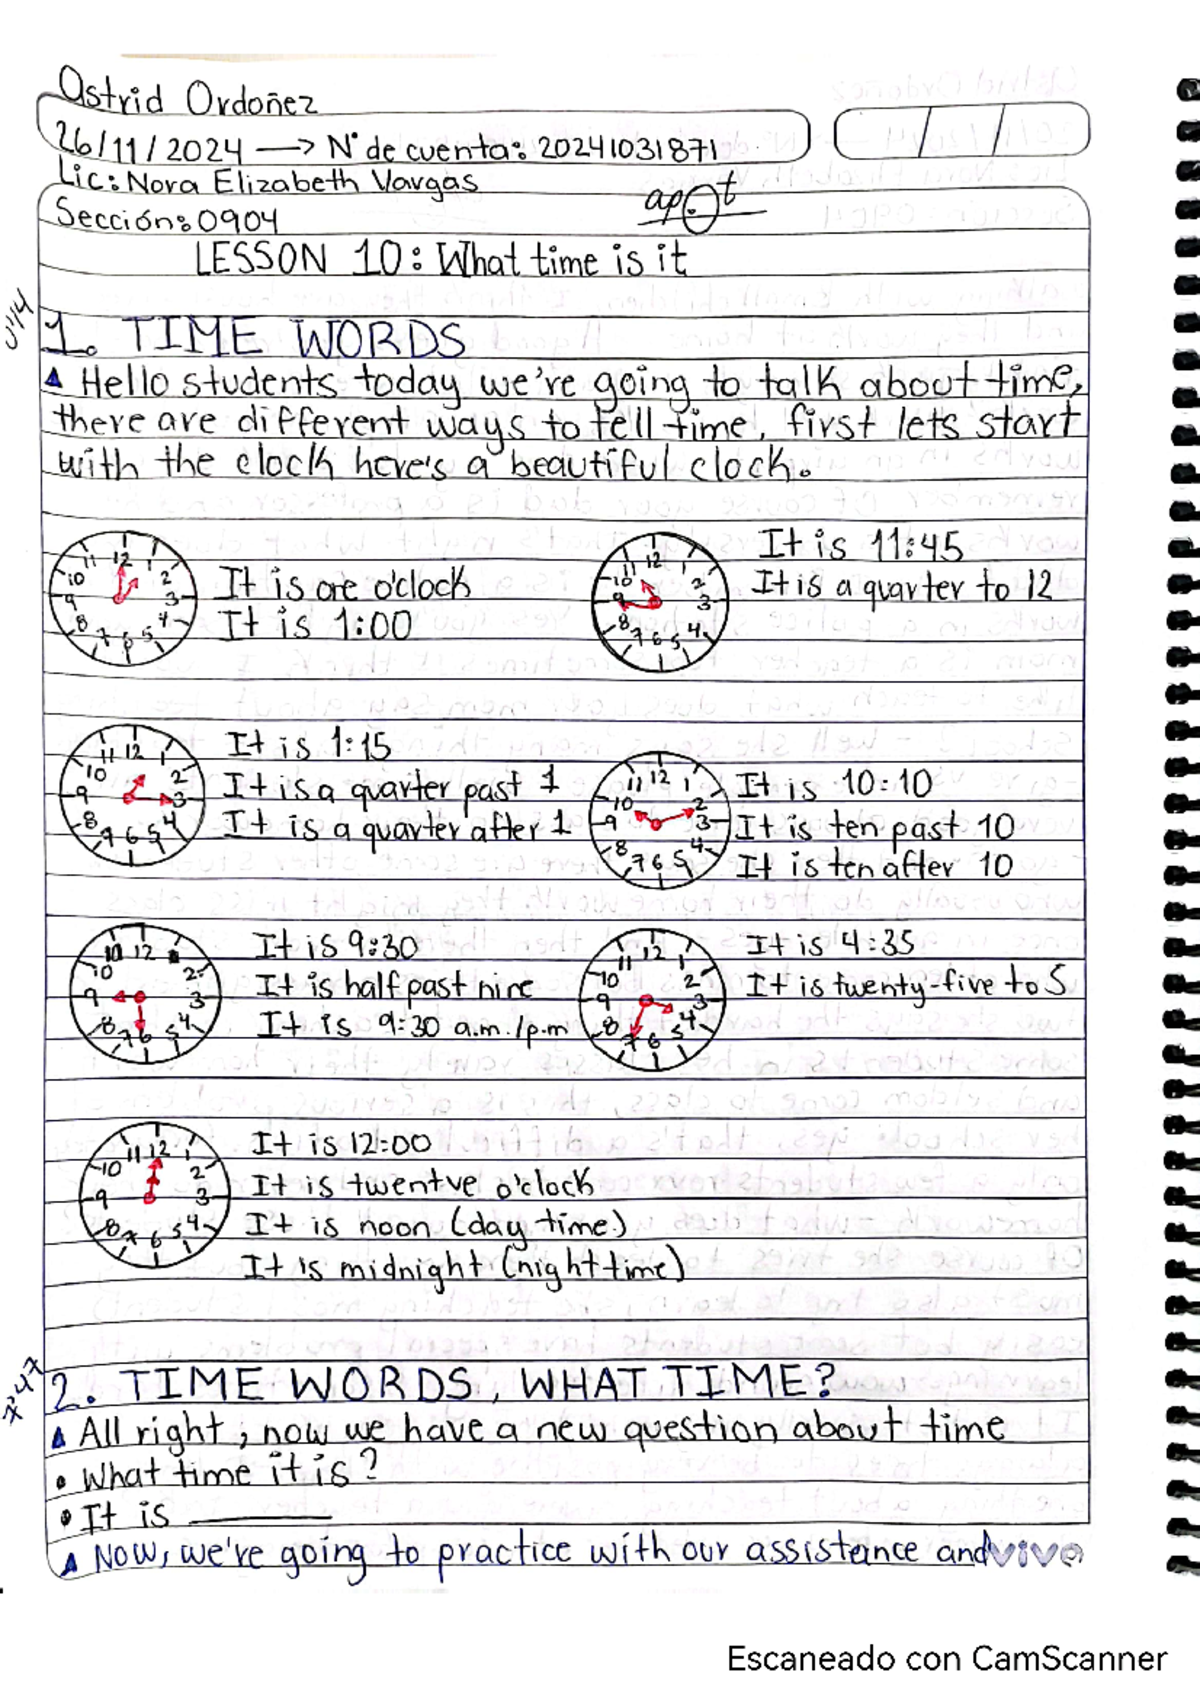 Astrid Ordoñez
26/11/2024 → N° de cuenta: 20241031871
Lic: Nora Elizabeth Vargas
Sección: 0904
LESSON 10: What time is it
1. TIME WORDS
Hello students today we're going to talk about time,
there are different ways to tell time, first lets start
with the clock here's a beautiful clock.
12 1 2 3 4 5 6 7 8 9 10 11
It is one o'clock
It is 1:00
12 1 2 3 4 5 6 7 8 9 10 11
It is 11:45
It is a quarter to 12
12 2 3 4 5 6 7 8 9 10 11
It is 1:15
It is a quarter past 1
It is a quarter after 1
12 1 2 3 4 5 6 7 8 9 10 11
It is 10:10
It is ten past 10
It is ten after 10
12 2 3 4 5 6 7 8 9 10
It is 9:30
It is half past nine
It is 9:30 a.m./p.m
12 1 2 3 4 5 6 7 8 9 10 11
It is 4:35
It is twenty-five to 5
12 1 2 3 4 5 6 7 8 9 10 11
It is 12:00
It is twentve o'clock
It is noon (day time)
It is midnight (night time)
2. TIME WORDS, WHAT TIME?
All right, now we have a new question about time
• What time it is?
• It is ________
Now, we're going to practice with our assistance and
vive
Escaneado con CamScanner